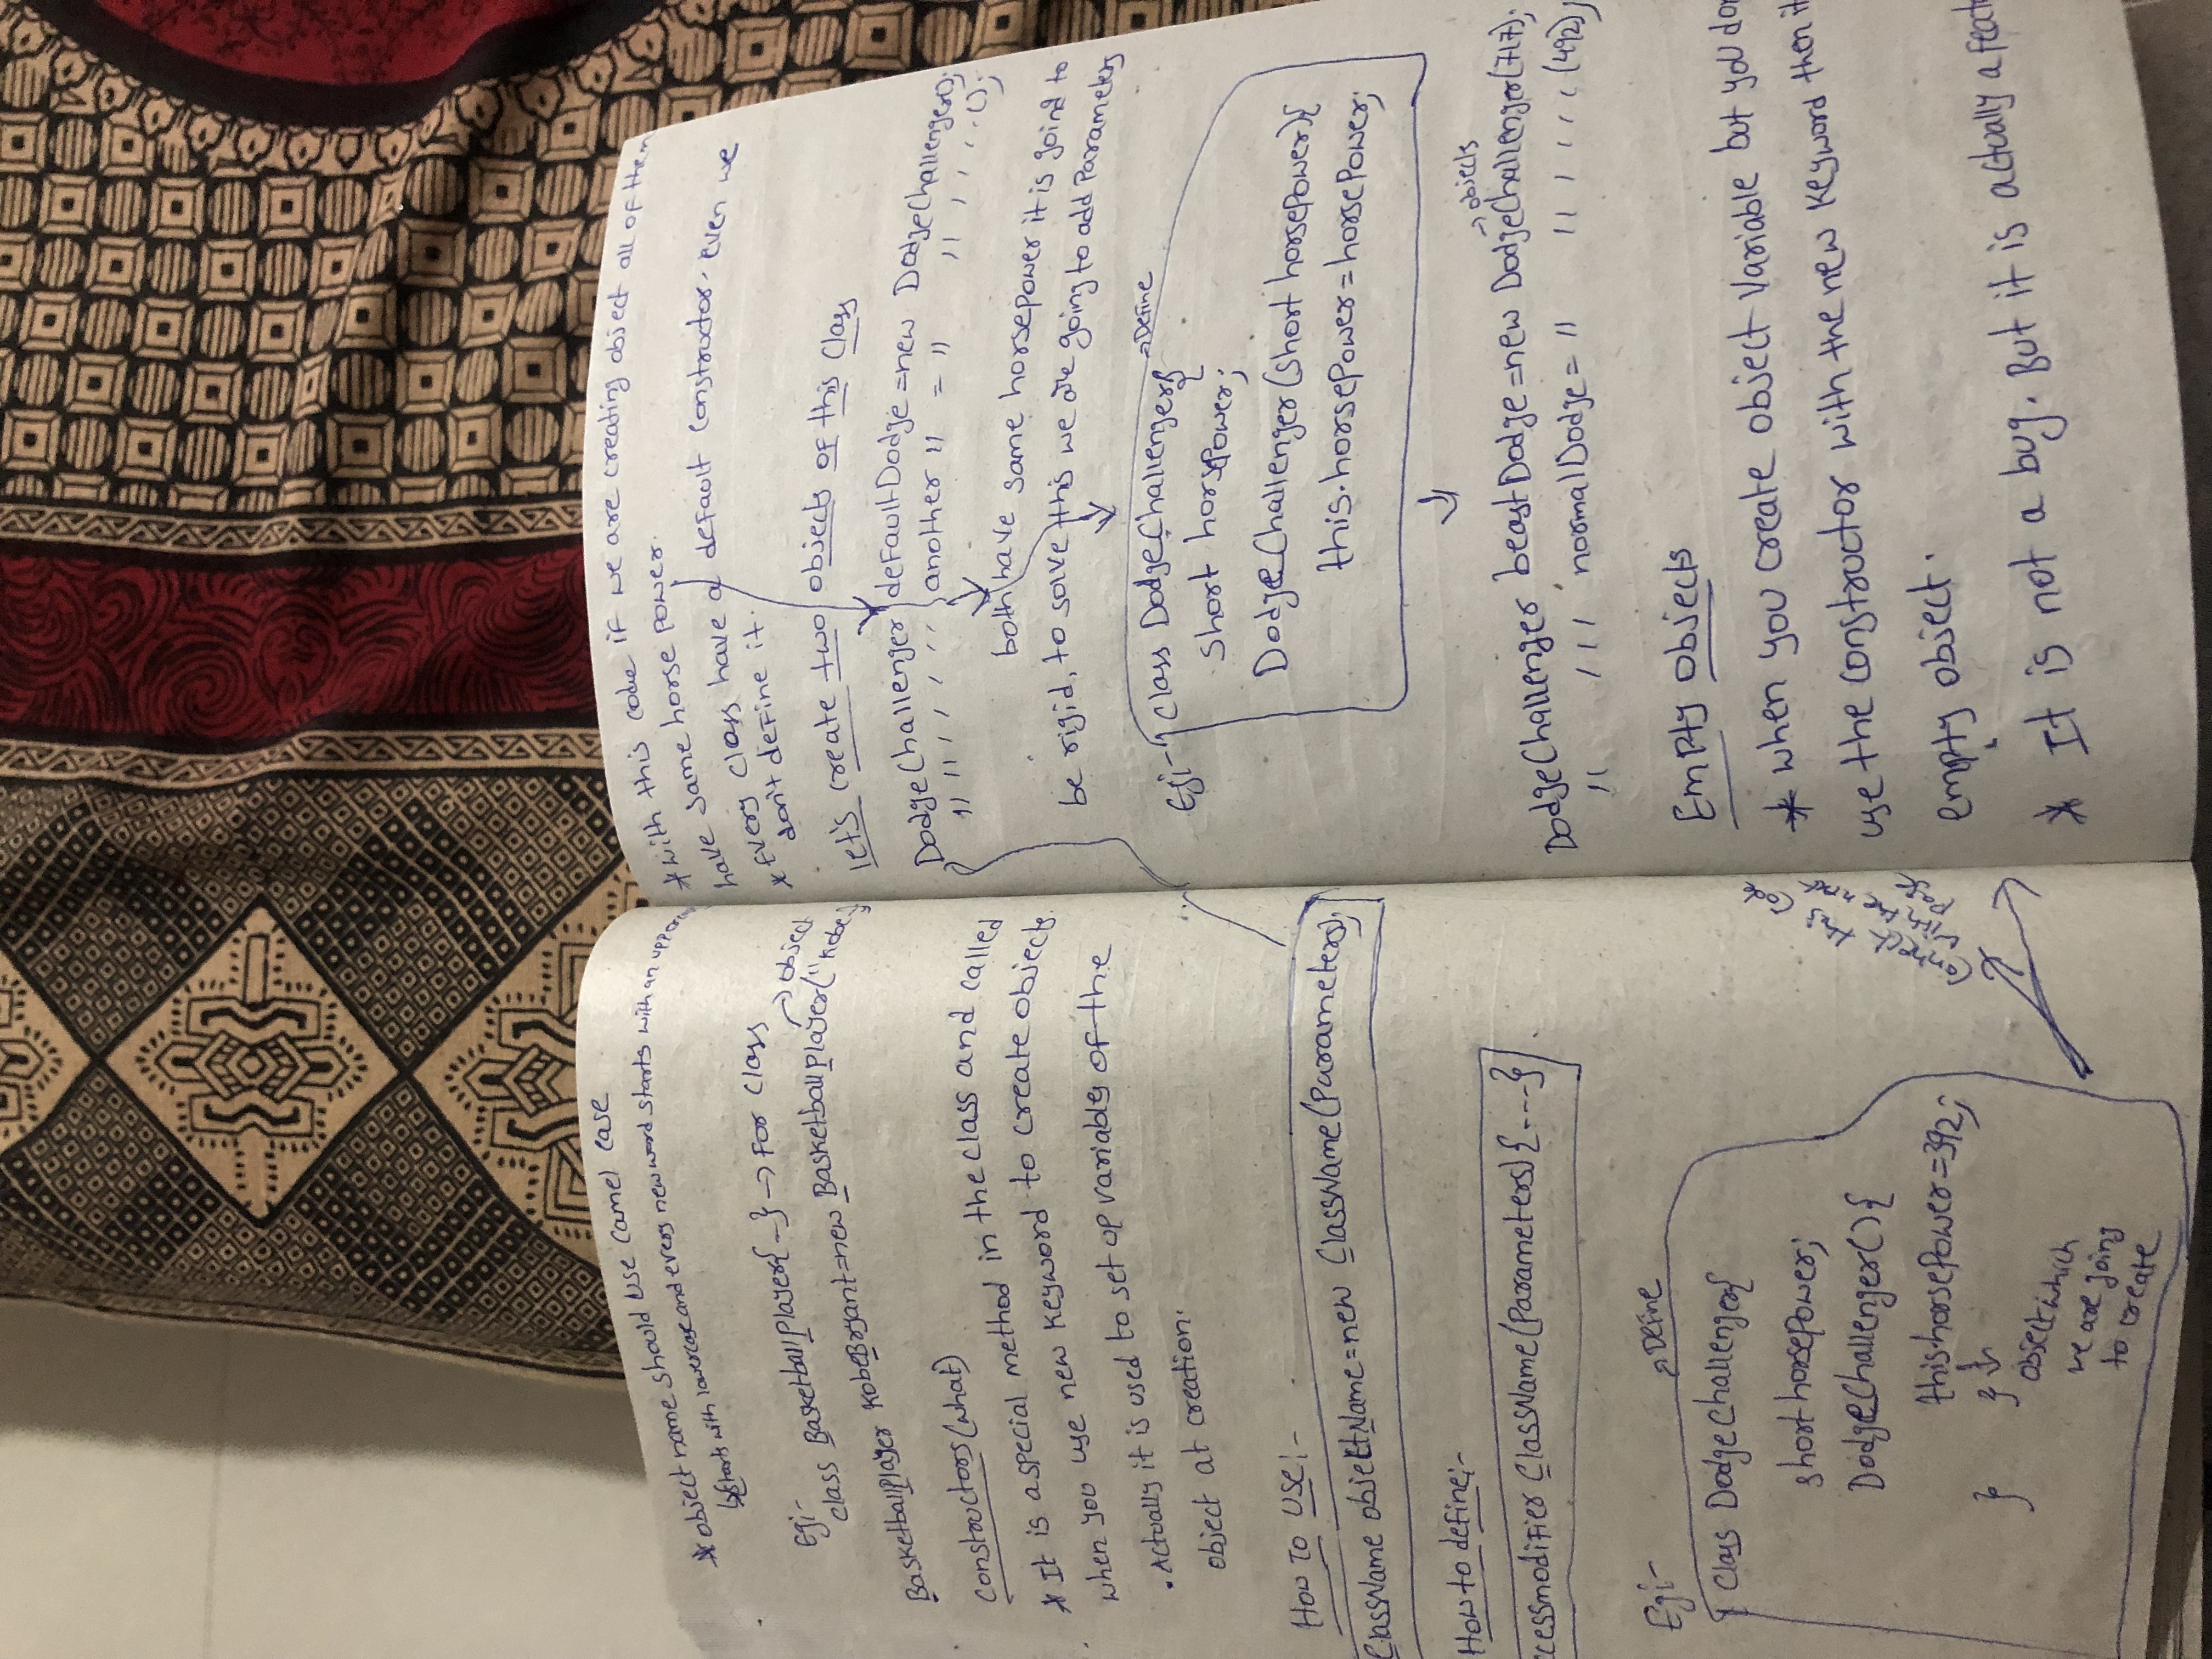 * object name should use Camel case
↳ starts with lowercase and every new word starts with an
Eg:-
class BasketballPlayer{ -- } → For class
→ object
BasketballPlayer KobeBryant = new BasketballPlayer("Kobe
Constructors (what)
* It is a special method in the class and called
when you use new keyword to create objects.
• Actually it is used to set up variables of the
object at creation.
How To Use:-
ClassName objectName = new ClassName(Parameters);
How to define:-
ccessmodifier ClassName(Parameters) {----}
Eg:-
→ Define
Class DodgeChallenger{
short horsePower;
DodgeChallenger() {
this.horsePower = 392;
} }
object which
we are going
to create
Connect this Code
with the next
page
* with this code if we are creating object all of them
have same horse power.
* Every class have a default constructor, even we
don't define it.
Let's create two objects of this Class
DodgeChallenger defaultDodge = new DodgeChallenger();
" " " ' ' ' ' another " = " " ' ' ' ' ();
both have same horsepower it is going to
be rigid, to solve this we are going to add Parameters
→ Define
Eg:- Class DodgeChallenger{
short horsePower;
DodgeChallenger(short horsePower){
this.horsePower = horsePower;
→ objects
DodgeChallenger beastDodge = new DodgeChallenger(717);
" ' ' ' normalDodge = " " ' ' ' ' (492);
Empty Objects
* when you create object Variable but you don
use the constructor with the new keyword then it
empty object.
* It is not a bug. But it is actually a featu